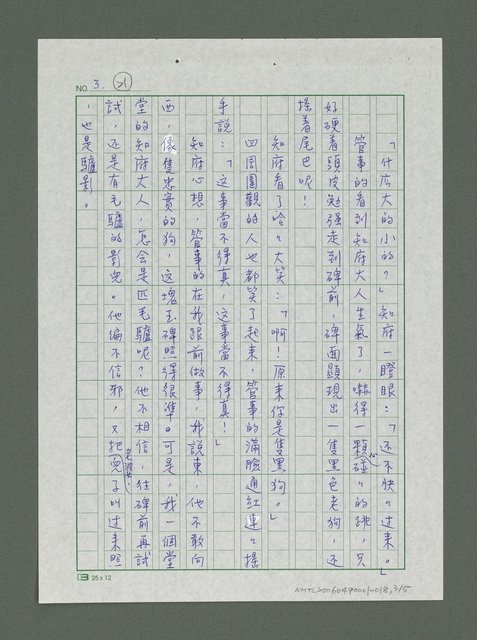 NO. 3. 21
「什広大的小的？」知府一瞪眼：「还不快々过来。」
管事的看到知府大人生氣了，嚇得一顆心碰々的跳，只
好硬着頭皮勉强走到碑前，碑面顕現出一隻黑色老狗，还
搖着尾巴呢！
知府看了哈々大笑：「啊！原来你是隻黑狗。」
四周圍觀的人也都笑了起来，管事的滿臉通紅連々搖
手説：「这事當不得真，这事當不得真！」
知府心想，管事的在我跟前做事，我說東，他不敢向
西，像隻忠實的狗，这塊玉碑照得很準。可是，我一個堂
堂的知府大人，怎会是匹毛驢呢？他不相信，往碑前再試
試，还是有毛驢的影兒。他偏不信邪，又把老婆、兒子叫过来照
，也是驢影。
25 x 12
NMTL20060490001-018, 3/5